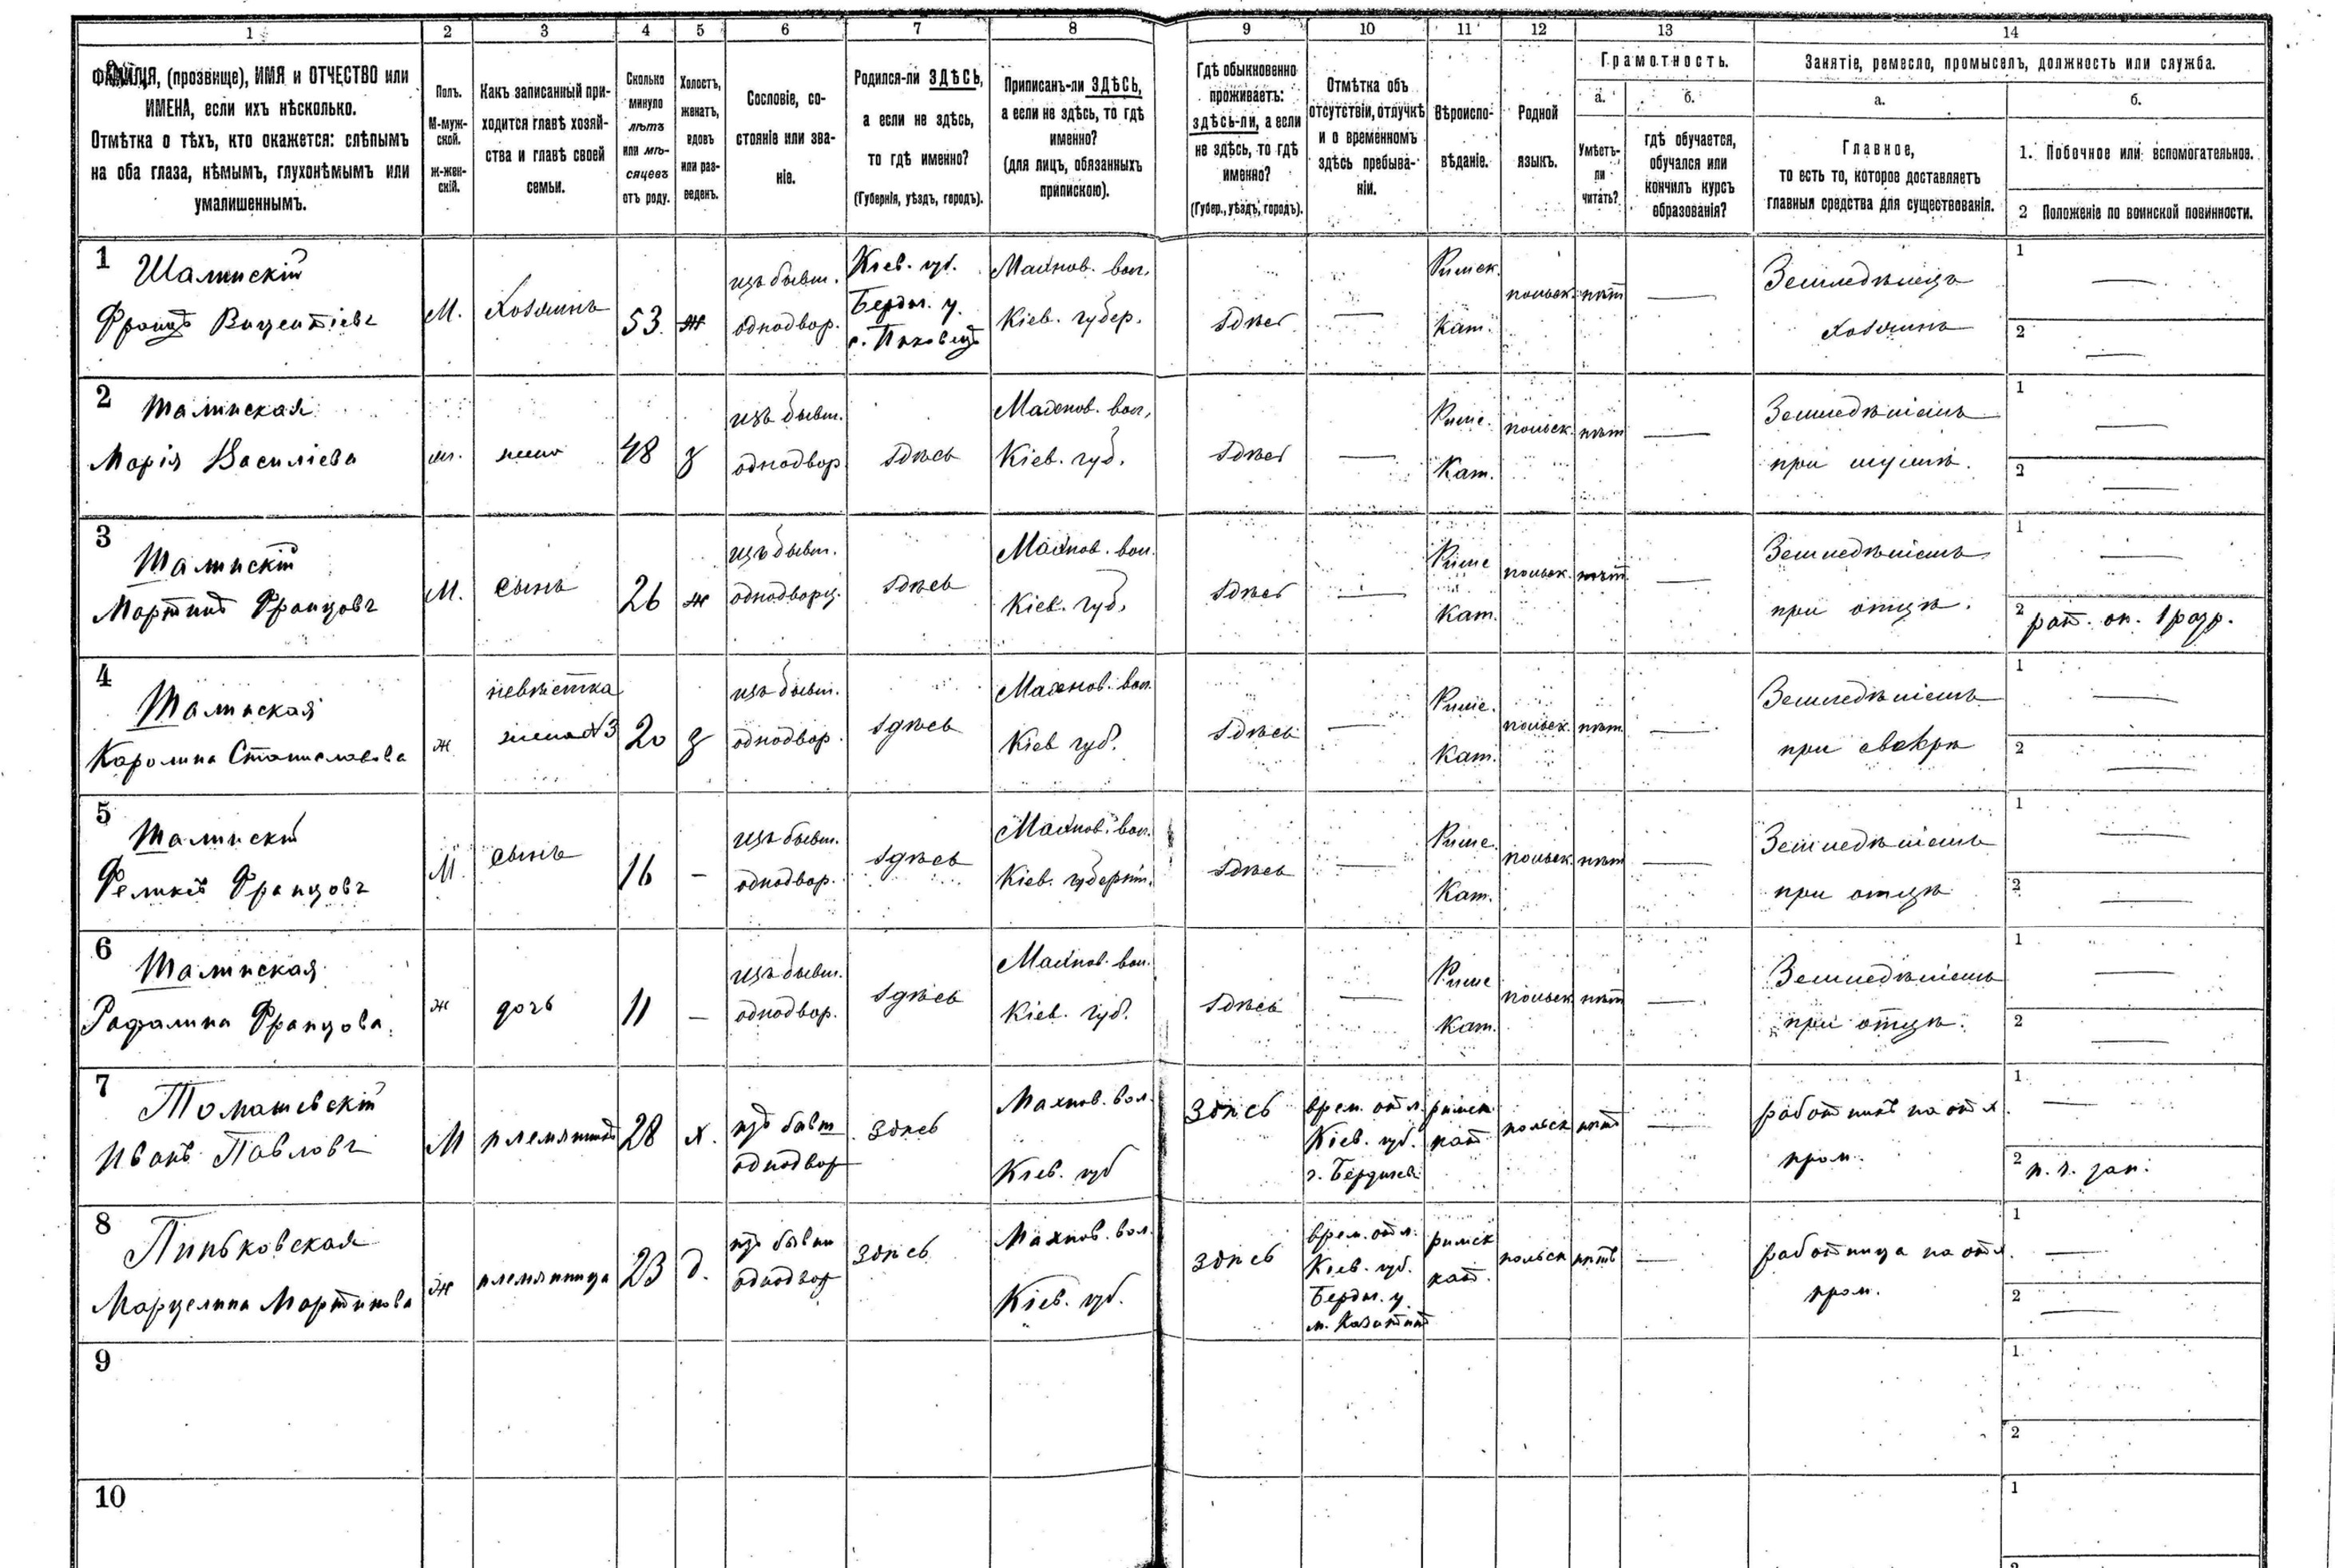 1 2 3 4 5 6 7 8 9 10 11 12 13 14
ФАМИЛІЯ, (прозвище), ИМЯ и ОТЧЕСТВО или
ИМЕНА, если ихъ нѣсколько.
Отмѣтка о тѣхъ, кто окажется: слѣпымъ
на оба глаза, нѣмымъ, глухонѣмымъ или
умалишеннымъ.
Полъ.
М-муж-
ской.
Ж-жен-
скій.
Какъ записанный при-
ходится главѣ хозяй-
ства и главѣ своей
семьи.
Сколько
минуло
лѣтъ
или мѣ-
сяцевъ
отъ роду.
Холостъ,
женатъ,
вдовъ
или раз-
веденъ.
Сословіе, со-
стояніе или зва-
ніе.
Родился-ли ЗДѢСЬ,
а если не здѣсь,
то гдѣ именно?
(Губернія, уѣздъ, городъ).
Приписанъ-ли ЗДѢСЬ,
а если не здѣсь, то гдѣ
именно?
(для лицъ, обязанныхъ
припискою).
Гдѣ обыкновенно
проживаетъ:
здѣсь-ли, а если
не здѣсь, то гдѣ
именно?
(Губер., уѣздъ, городъ).
Отмѣтка объ
отсутствіи, отлучкѣ
и о временномъ
здѣсь пребыва-
ніи.
Вѣроиспо-
вѣданіе.
Родной
языкъ.
Грамотность.
а.
Умѣетъ-
ли
читать?
б.
гдѣ обучается,
обучался или
кончилъ курсъ
образованія?
Занятіе, ремесло, промыселъ, должность или служба.
а.
Главное,
то есть то, которое доставляетъ
главныя средства для существованія.
б.
1. Побочное или вспомогательное.
2 Положеніе по воинской повинности.
1
Шалинскій
Францъ Викентіевъ
М.
Хозяинъ
53
ж
изъ бывш.
однодвор.
Кіев. губ.
Бердич. у.
Махнов. вол.
Кіев. губер.
здѣсь
—
Римск.
Кат.
польск.
нѣт
—
Земледѣлецъ
хозяинъ
1 —
2 —
2
Шалинская
Марія Василіева
ж.
жена
48
з
изъ бывш.
однодвор
здѣсь
Махнов. вол.
Кіев. губ.
здѣсь
—
Римс.
Кат.
польск.
нѣт
—
Земледѣліемъ
при мужѣ.
1 —
2 —
3
Шалинскій
Мартинъ Францовъ
М.
сынъ
26
ж
изъ бывш.
однодворц.
здѣсь
Махнов. вол.
Кіев. губ.
здѣсь
—
Римс
Кат.
польск.
нѣт
—
Земледѣліемъ
при отцѣ.
1 —
2 рат. оп. 1 разр.
4
Шалинская
Каролина Станиславова
ж
невѣстка
жена №3
20
з
изъ бывш.
однодвор.
здѣсь
Махнов. вол.
Кіев губ.
здѣсь
—
Римс.
Кат.
польск.
нѣт
—
Земледѣліемъ
при свекрѣ
1 —
2 —
5
Шалинскій
Феликсъ Францовъ
М.
сынъ
16
—
изъ бывш.
однодвор.
здѣсь
Махнов. вол.
Кіев. губерніи.
здѣсь
—
Римс.
Кат.
польск.
нѣт
—
Земледѣліемъ
при отцѣ
1 —
2 —
6
Шалинская
Рафалина Францова
ж
дочь
11
—
изъ бывш.
однодвор.
здѣсь
Махнов. вол.
Кіев. губ.
здѣсь
—
Римс
Кат.
польск
нѣт
—
Земледѣліемъ
при отцѣ.
1 —
2 —
7
Томашевскій
Иванъ Павловъ
М
племянникъ
28
х.
изъ бывш
однодвор
здѣсь
Махнов. вол.
Кіев. губ
здѣсь
врем. отл.
Кіев. губ.
г. Бердичевъ
римск
кат
польск
нѣтъ
—
работникъ на отх
пром.
1 —
2 н. ч. зап.
8
Пиньковская
Марцелина Мартинова
ж
племянница
23
д.
изъ бывш
однодвор
здѣсь
Махнов. вол.
Кіев. губ.
здѣсь
врем. отл.
Кіев. губ.
Бердич. у.
м. Казатинъ
римск
кат.
польск
нѣтъ
—
работница на отх.
пром.
1 —
2 —
9
1
2
10
1